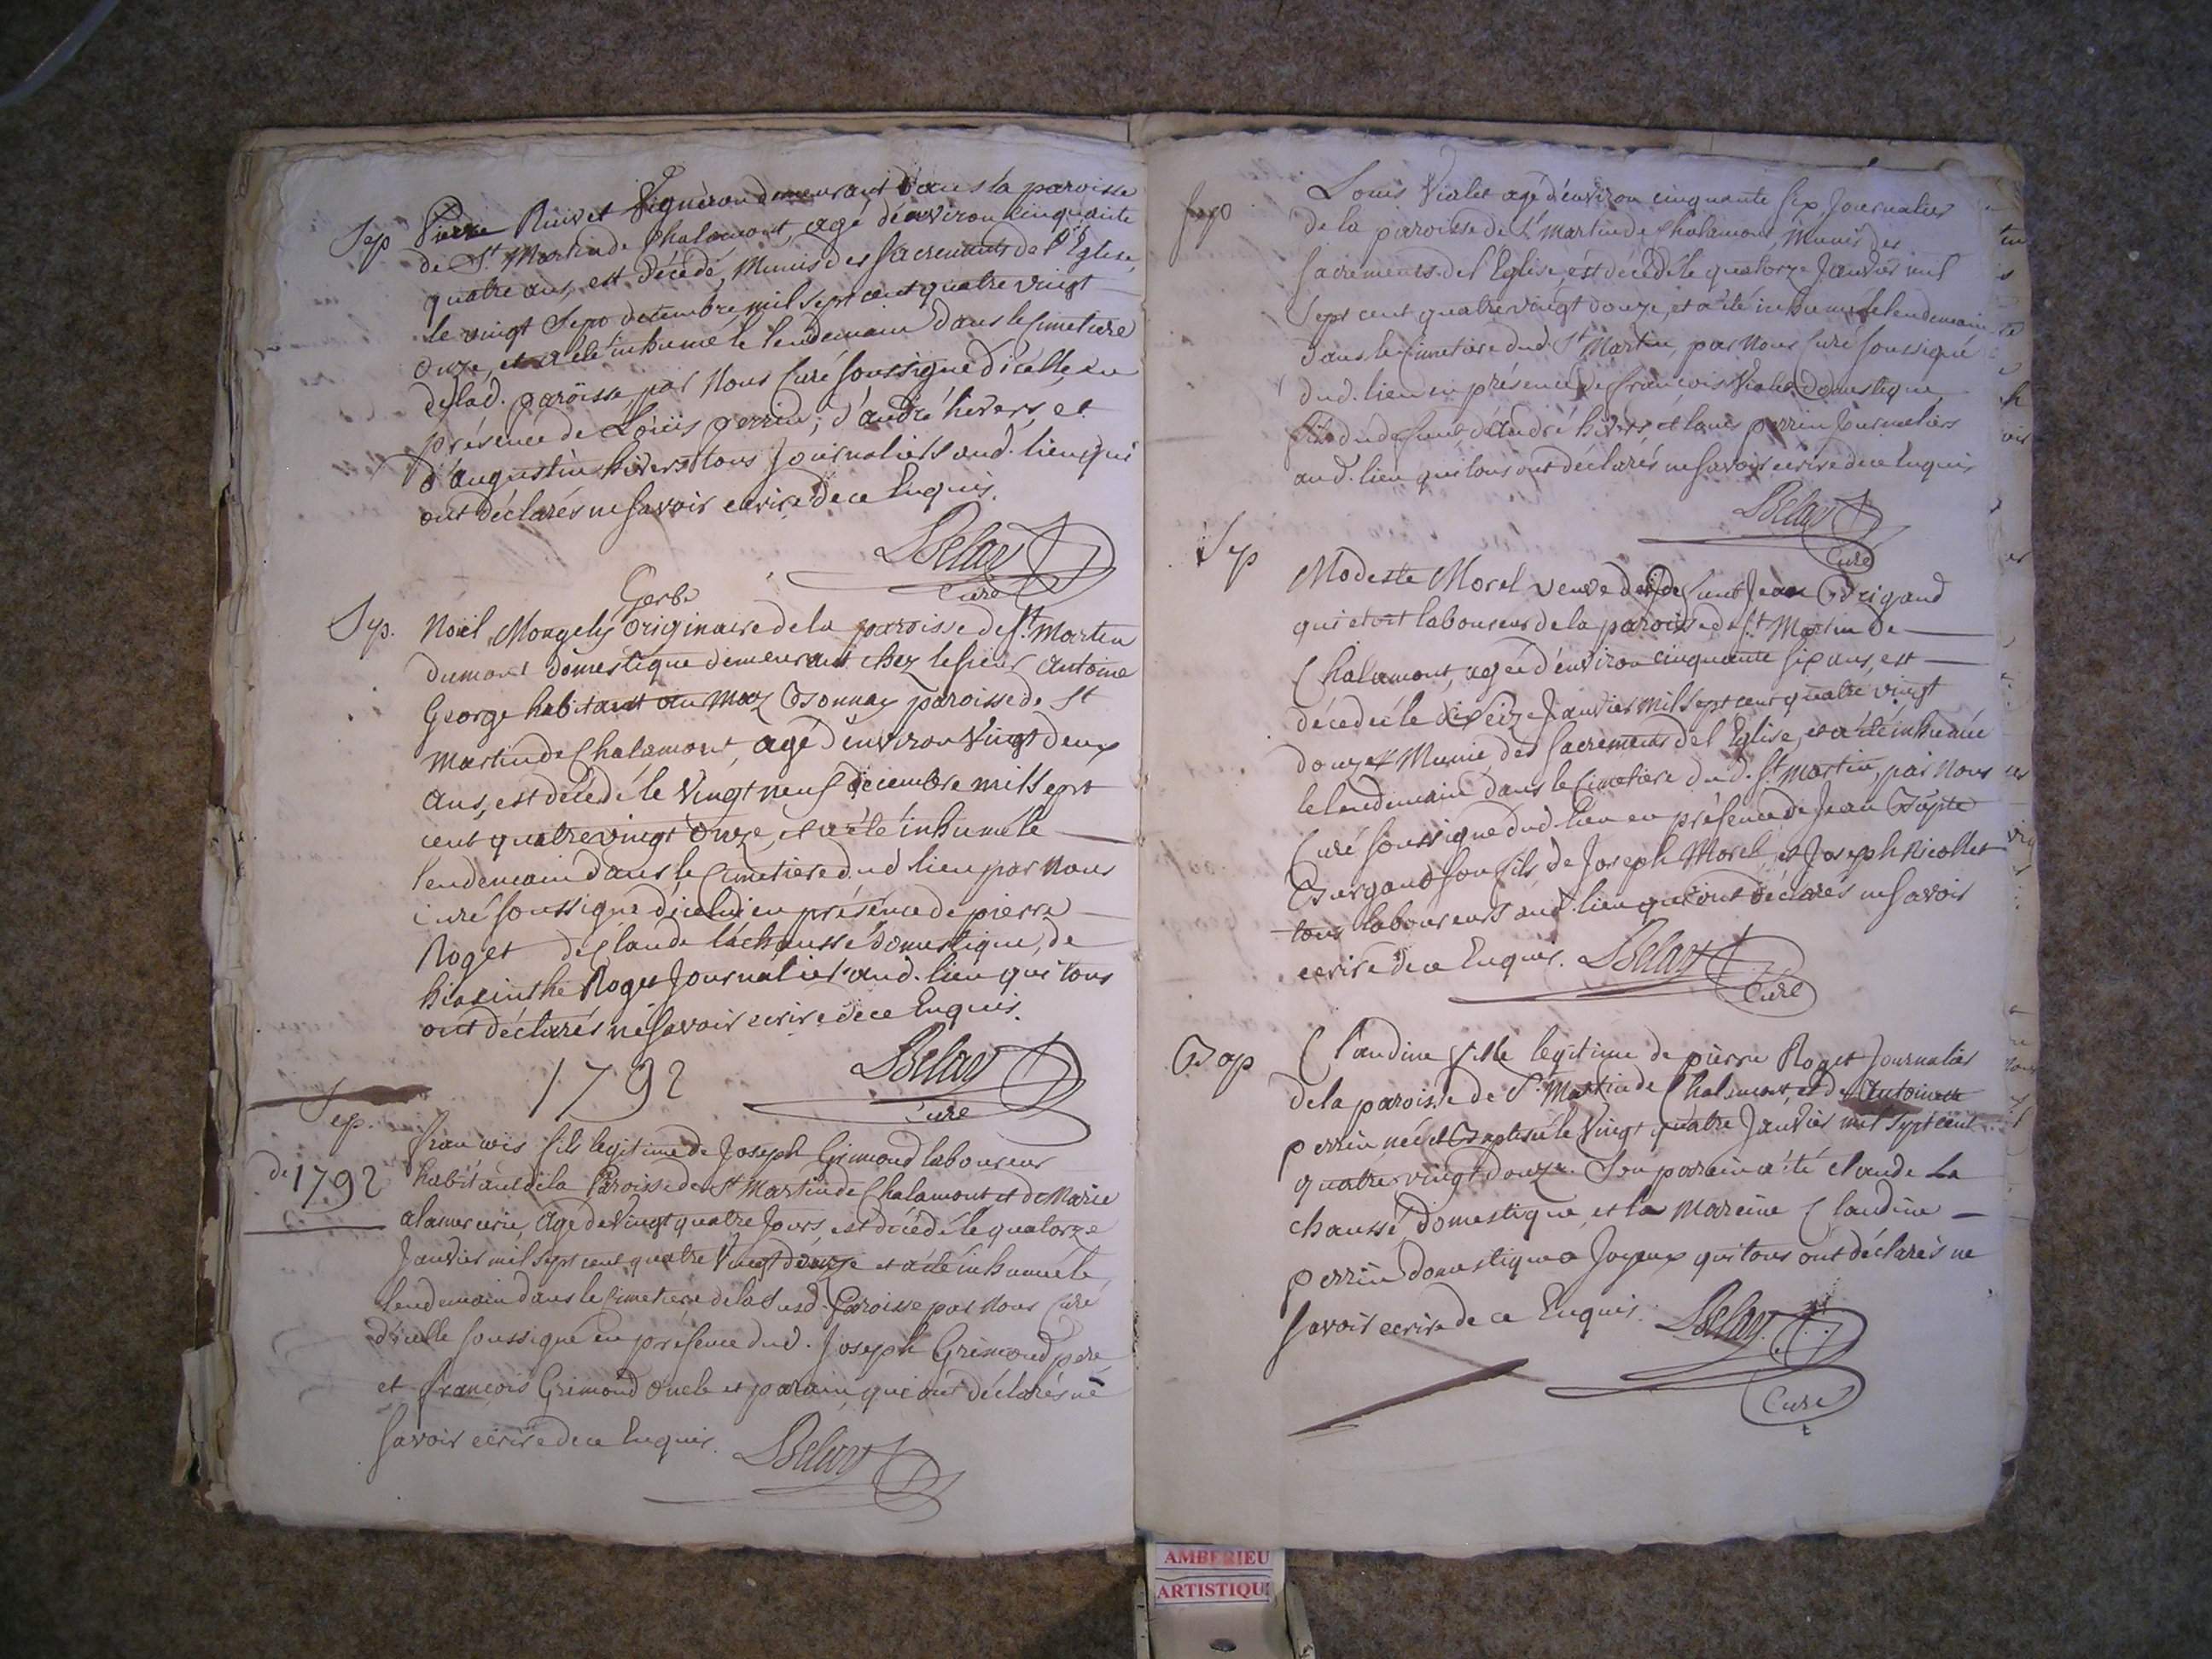 Sep Pierre Vigneron demeurant dans la paroisse
de St. Martin de Chalamont, agé d'environ cinquante
quatre ans, est décédé, Munis des Sacrements de l'Eglise,
le vingt Sept decembre mil sept cent quatre vingt
onze, et a été inhumé le lendemain dans le Cimetiere
de lad. paroisse par Nous Curé soussigné d'icelle, en
présence de Loüis perrin, d'andré hivers, et
d'augustin hivers tous Journaliers aud. lieu qui
ont déclarés ne savoir ecrire de ce Enquis.
Belay
Curé
Gerbe
Sep. Noël Mongely originaire de la paroisse de St. Martin
dumont domestique demeurant chez le sieur Antoine
George habitant au Maz Bonnay paroisse de St
Martin de Chalamont, agé d'environ Vingt deux
ans, est décédé le Vingt neuf decembre mil sept
cent quatre vingt onze, et a été inhumé le
lendemain dans le Cimetiere dud lieu par Nous
curé soussigné d'icelui en présence de pierre
Roget de Claude lachaussé domestique, de
hiacinthe Roget Journalier aud. lieu qui tous
ont déclarés ne savoir ecrire de ce Enquis.
1792
Belay
Curé
Sep. francois fils legitime de Joseph Grimond laboureur
de 1792 habitant de la Paroisse de St Martin de Chalamont et de Marie
agé de Vingt quatre Jours, est décédé le quatorze
Janvier mil sept cent quatre Vingt douze et a été inhumé le
lendemain dans le Cimetiere de la susd. Paroisse par Nous Curé
d'icelle soussigné en présence dud. Joseph Grimond pere,
et françois Grimond oncle et parain, qui ont déclarés ne
savoir ecrire de ce Enquis.
Belay
Louis Vialet agé d'environ cinquante six Journalier
de la paroisse de St martin de Chalamont, Munis des
sacrements de l'Eglise, est décédé le quatorze Janvier mil
sept cent quatre vingt douze, et a été inhumé le lendemain
dans le Cimetiere dud. St Martin, par Nous Curé soussigné
dud. lieu en présence de françois Vialet domestique
fils dud defunt, d'andré hivers, et louis perrin Journaliers
aud. lieu qui tous ont déclarés ne savoir ecrire de ce Enquis
Belay
Curé
Sep
Modeste Morel veuve de defunt Jean
qui etoit laboureur de la paroisse de St Martin de
Chalamont, agée d'environ cinquante six ans, est
décedée le Seize Janvier mil sept cent quatre vingt
douze Munie des sacrements de l'Eglise, et a été inhumée
le lendemain dans le Cimetiere dud. St. martin, par Nous
Curé soussigné dud. lieu en présence de Jean Bapte
son fils, de Joseph Morel, et Joseph Nicollet
tous laboureurs aud. lieu qui ont déclarés ne savoir
ecrire de ce Enquis. Belay
Curé
Bap Claudine fille legitime de pierre Roget Journalier
de la paroisse de St. Martin de Chalamont, et de Antoinette
perrin née et Baptisée le Vingt quatre Janvier mil sept cent
quatre vingt douze. Son parain a été claude La
chaussé domestique et la Mareine Claudine
perrin domestique a Joyeux qui tous ont déclarés ne
savoir ecrire de ce Enquis. Belay
Curé
AMBERIEU
ARTISTIQU